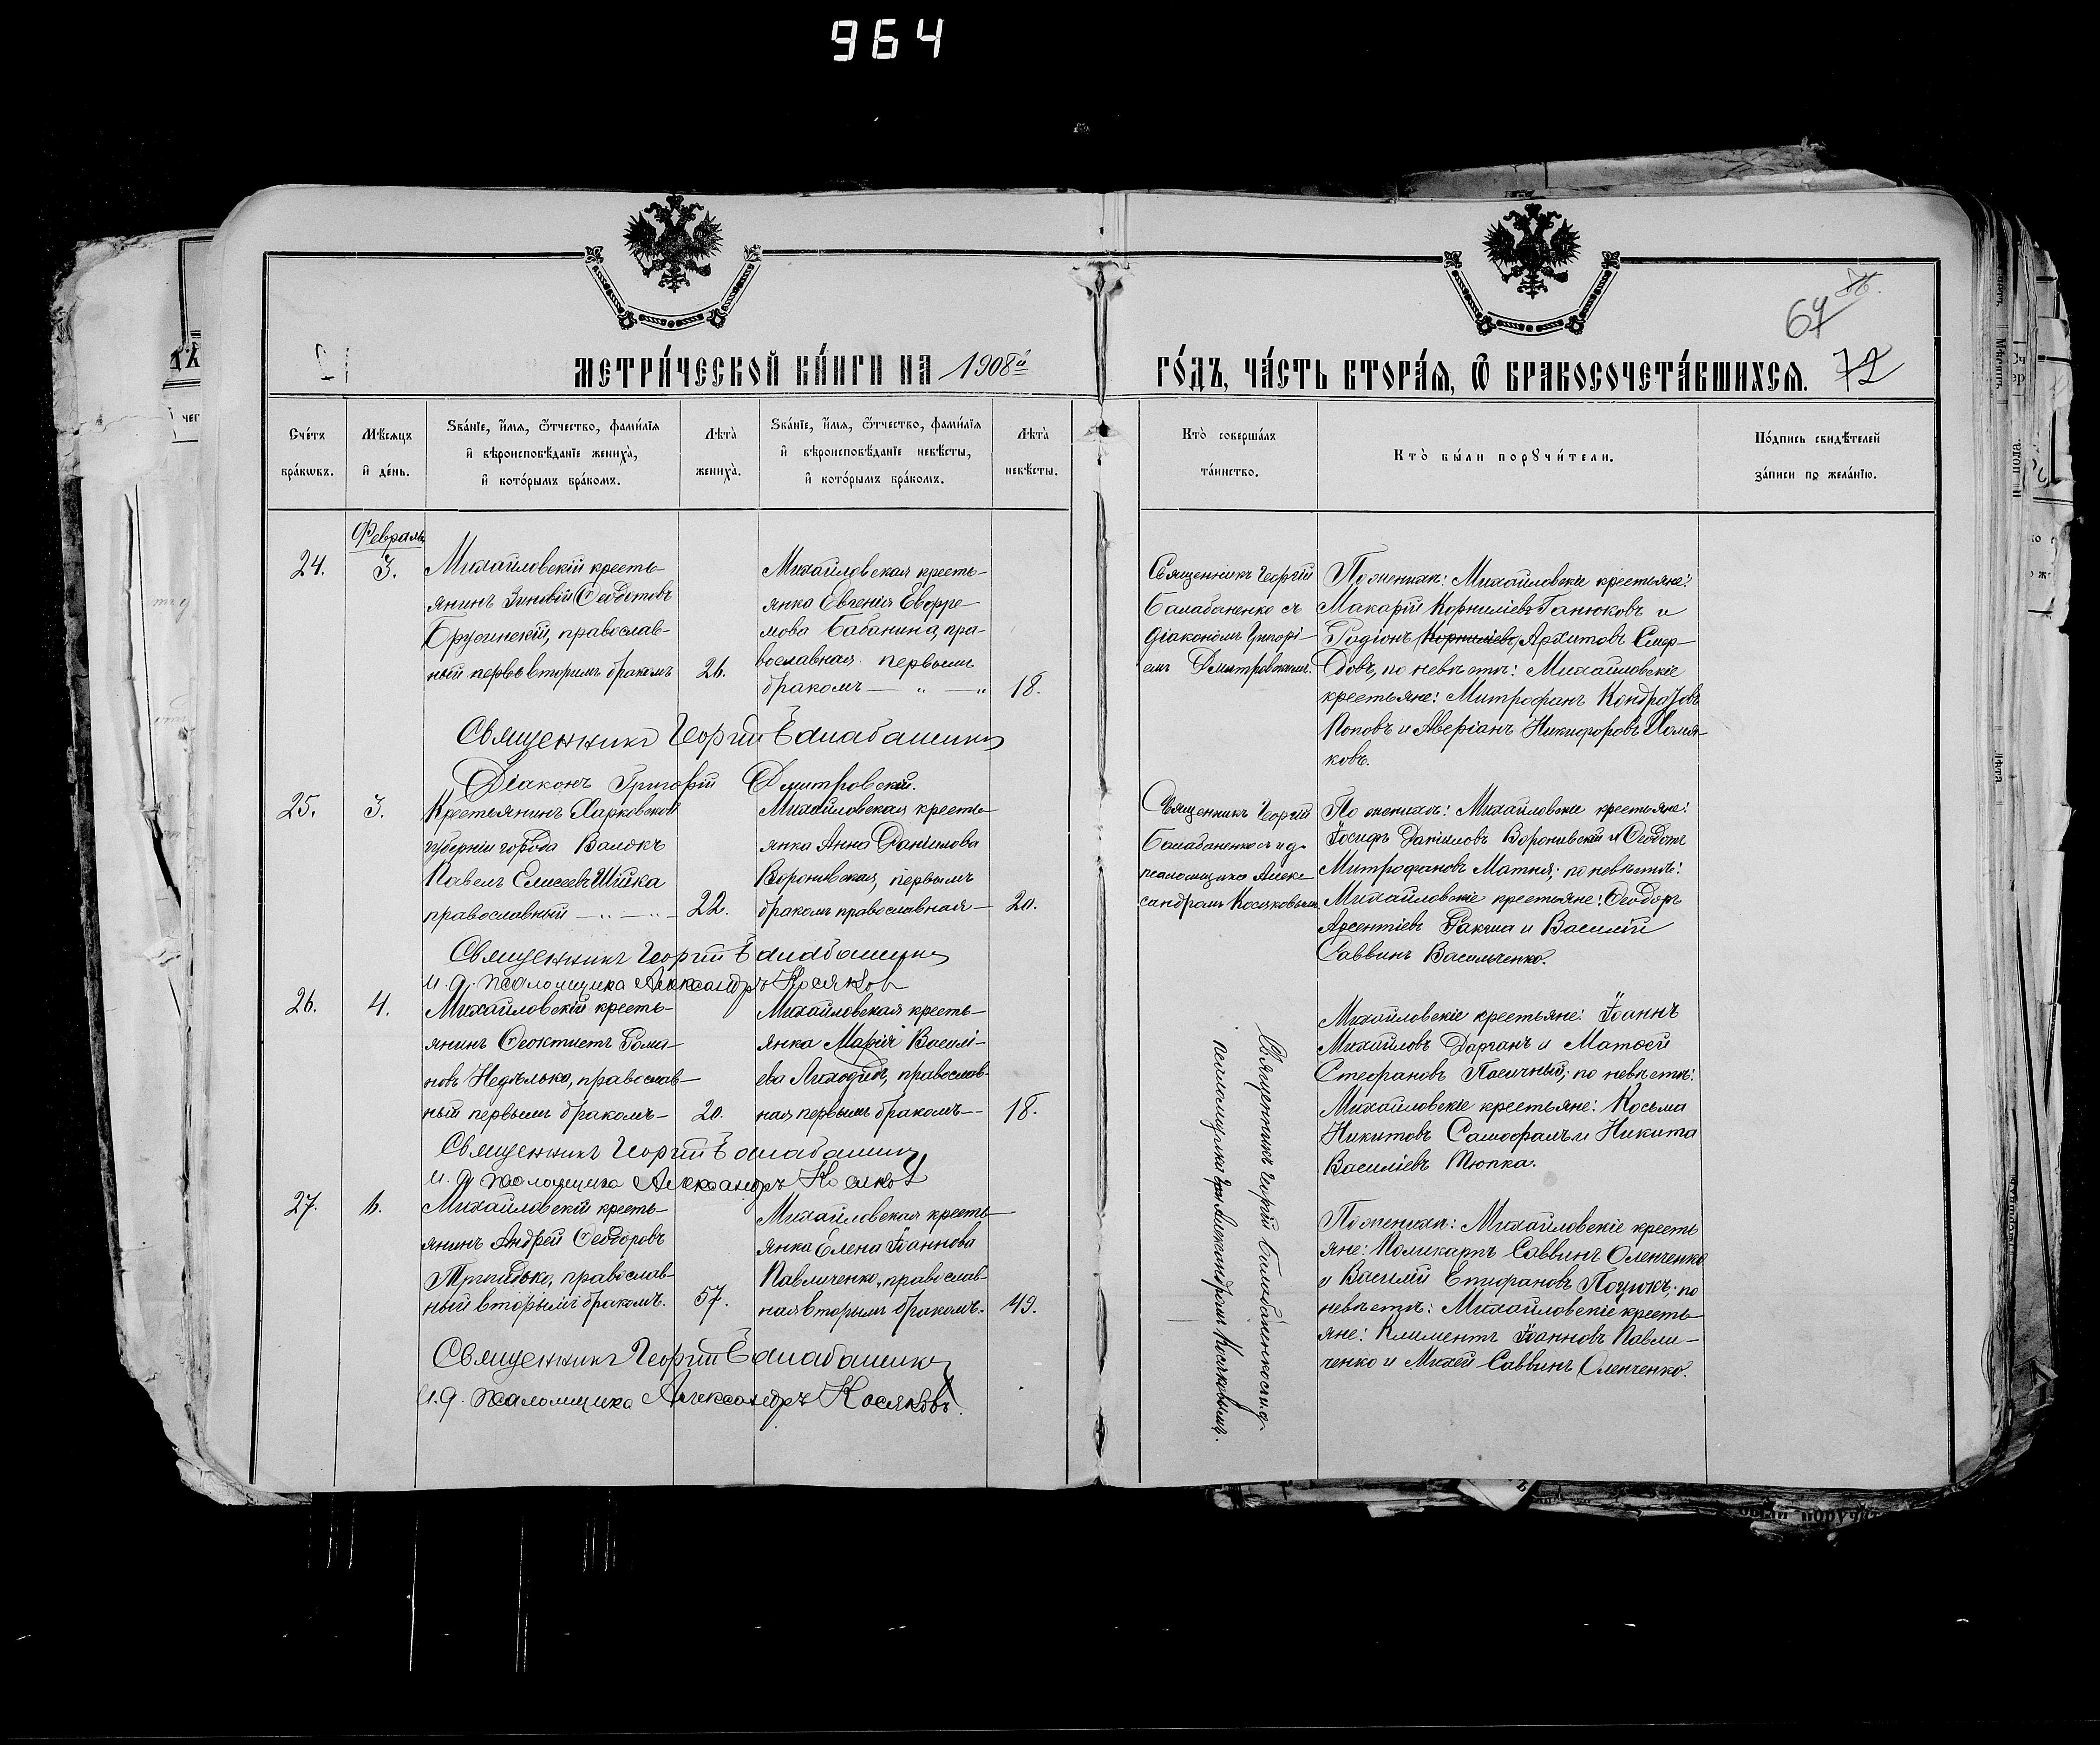 964
67
72
МЕТРИ́ЧЕСКОЙ КНИ́ГИ НА 1908й ГО́ДЪ, ЧА́СТЬ ВТОРА́Ѧ, Ѽ БРАКОСОЧЕТА́ВШИХСѦ.
Сче́тъ бра́кѡвъ.
Мѣ́сѧцъ и҆ де́нь.
Ѕва́нїе, и҆́мѧ, ѻ҆́тчество, фамі́лїѧ и҆ вѣроисповѣ́данїе жениха̀, и҆ кото́рымъ бра́комъ.
Лѣ́та жениха̀.
Ѕва́нїе, и҆́мѧ, ѻ҆́тчество, фамі́лїѧ и҆ вѣроисповѣ́данїе невѣ́сты, и҆ кото́рымъ бра́комъ.
Лѣ́та невѣ́сты.
Кто̀ соверша́лъ та́инство.
Кто̀ бы́ли порꙋчи́тели.
По́дпись свидѣ́телей за́писи по жела́нїю.
Февраль
24.
3.
Михайловскій кресть-
янинъ Зиновій Ѳеодотовъ
Бругинскій, православ-
ный первы вторымъ бракомъ
26.
Михайловская кресть-
янка Евгенія Евфре-
мова Бабанина, пра-
вославная первымъ
бракомъ — „ — „
18.
Священникъ Георгій
Балабаненко съ
діакономъ Григорі-
емъ Дмитровскимъ.
По женихѣ: Михайловскіе крестьяне:
Макарій Корниліевъ Ганюковъ и
Родіонъ Корниліевъ Архиповъ Смер-
довъ, по невѣстѣ: Михайловскіе
крестьяне: Митрофанъ Кондратовъ
Поповъ и Аверіанъ Никифоровъ Хомя-
ковъ.
Священникъ Георгій Балабаненко
Діаконъ Григорій Дмитровскій.
25.
3.
Крестьянинъ Харковской
губерніи города Валокъ
Павелъ Елисеевъ Шійка
православный — „ — „ —
22.
Михайловская кресть-
янка Анна Даніилова
Воронивская, первымъ
бракомъ православная —
20.
Священникъ Георгій
Балабаненко съ и д.
псаломщика Алек-
сандромъ Косяковымъ.
По женихѣ: Михайловскіе крестьяне:
Іосифъ Даніиловъ Воронивскій и Ѳеодотъ
Митрофановъ Матня; по невѣстѣ:
Михайловскіе крестьяне: Ѳеодоръ
Арсентіевъ Ракша и Василій
Саввинъ Васильченко.
Священникъ Георгій Балабаненко
и. д. псаломщика Александръ Косяковъ
26.
4.
Михайловскій кресть-
янинъ Ѳеоктистъ Рома-
новъ Недѣлько, православ-
ный первымъ бракомъ —
20.
Михайловская кресть-
янка Марія Василі-
ева Лиходидъ, православ-
ная первымъ бракомъ —
18.
Михайловскіе крестьяне: Іоаннъ
Михайловъ Дарганъ и Матѳей
Стефановъ Пасичный; по невѣстѣ:
Михайловскіе крестьяне: Косьма
Никитовъ Самофалъ и Никита
Василіевъ Тюпка.
Священникъ Георгій Балабаненко
и. д. псаломщика Александръ Косяковъ
Священникъ Георгій Балабаненко съ и. д.
псаломщика Александромъ Косяковымъ.
27.
6.
Михайловскій кресть-
янинъ Андрей Ѳеодоровъ
православ-
ный вторымъ бракомъ.
57.
Михайловская кресть-
янка Елена Іоаннова
Павличенко, православ-
ная вторымъ бракомъ.
49.
По женихѣ: Михайловскіе кресть
яне: Поликарпъ Саввинъ Оленченко
и Василій Епифановъ Поцюкъ; по
невѣстѣ: Михайловскіе кресть-
яне: Климентъ Іоанновъ Павли-
ченко и Михей Саввинъ Оленченко.
Священникъ Георгій Балабаненко
И. д. псаломщика Александръ Косяковъ.